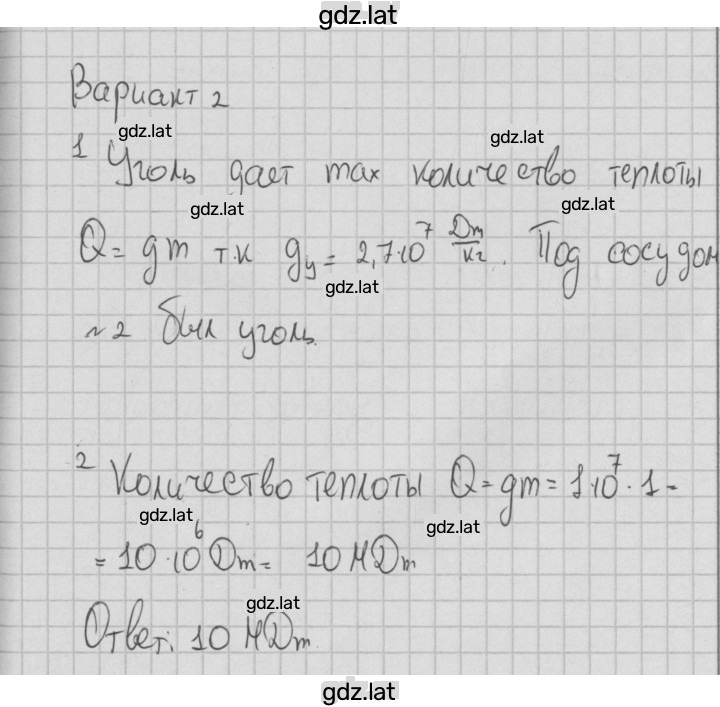 gdz.lat
Вариант 2
gdz.lat
gdz.lat
1 Уголь дает max количество теплоты
gdz.lat
gdz.lat
Q = qm т.к qу = 2,7·10⁷ Дж/кг. Под сосудом
gdz.lat
№2 был уголь.
2 Количество теплоты Q = qm = 1·10⁷·1 =
gdz.lat
gdz.lat
= 10·10⁶ Дж = 10 МДж
gdz.lat
Ответ: 10 МДж.
gdz.lat